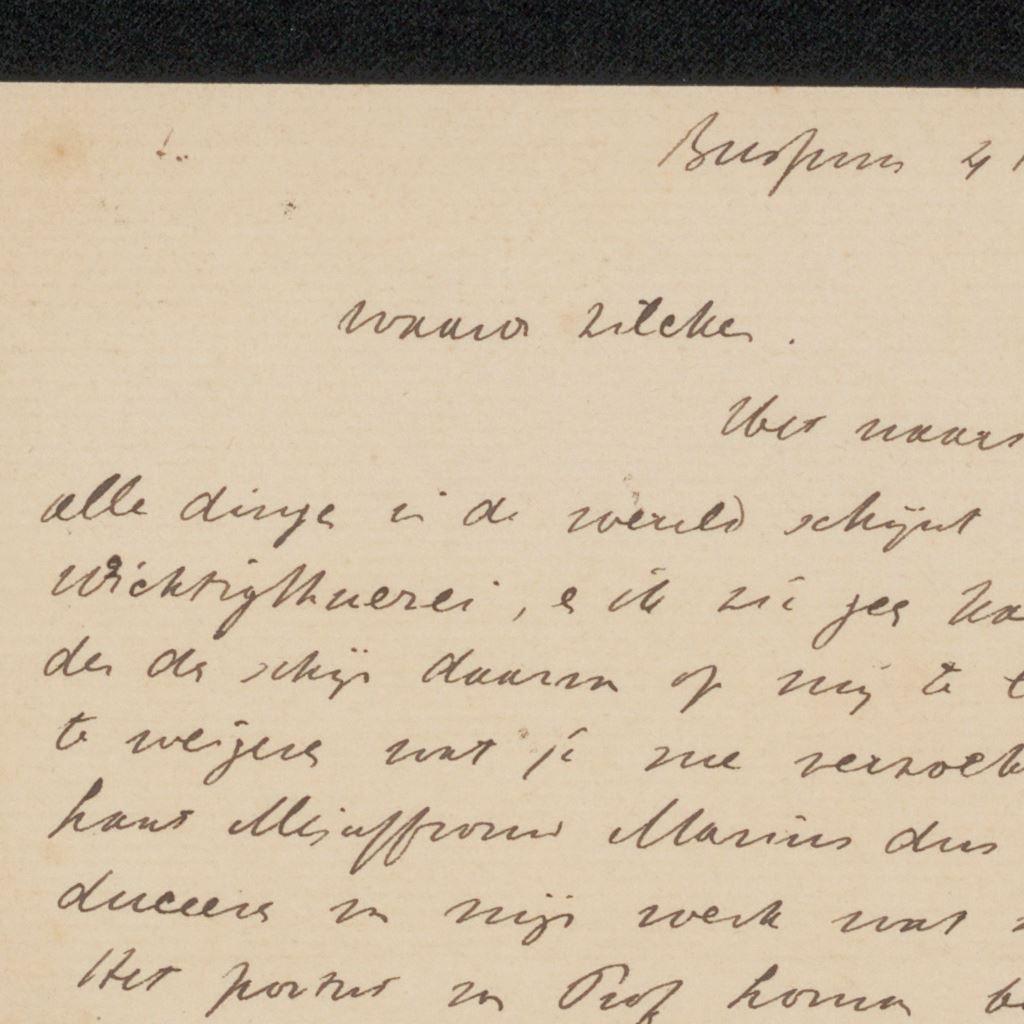 Bussum 4
Waarde Zilcken.
Het naars
alle dingen in de wereld schijnt
Wichtigthuerei, en ik zie geen
den de schijn daarvan op mij te
te weigeren wat je me verzoekt
kant Mejuffrouw Marius dus
duceeren van mijn werk wat
Het portret van Prof